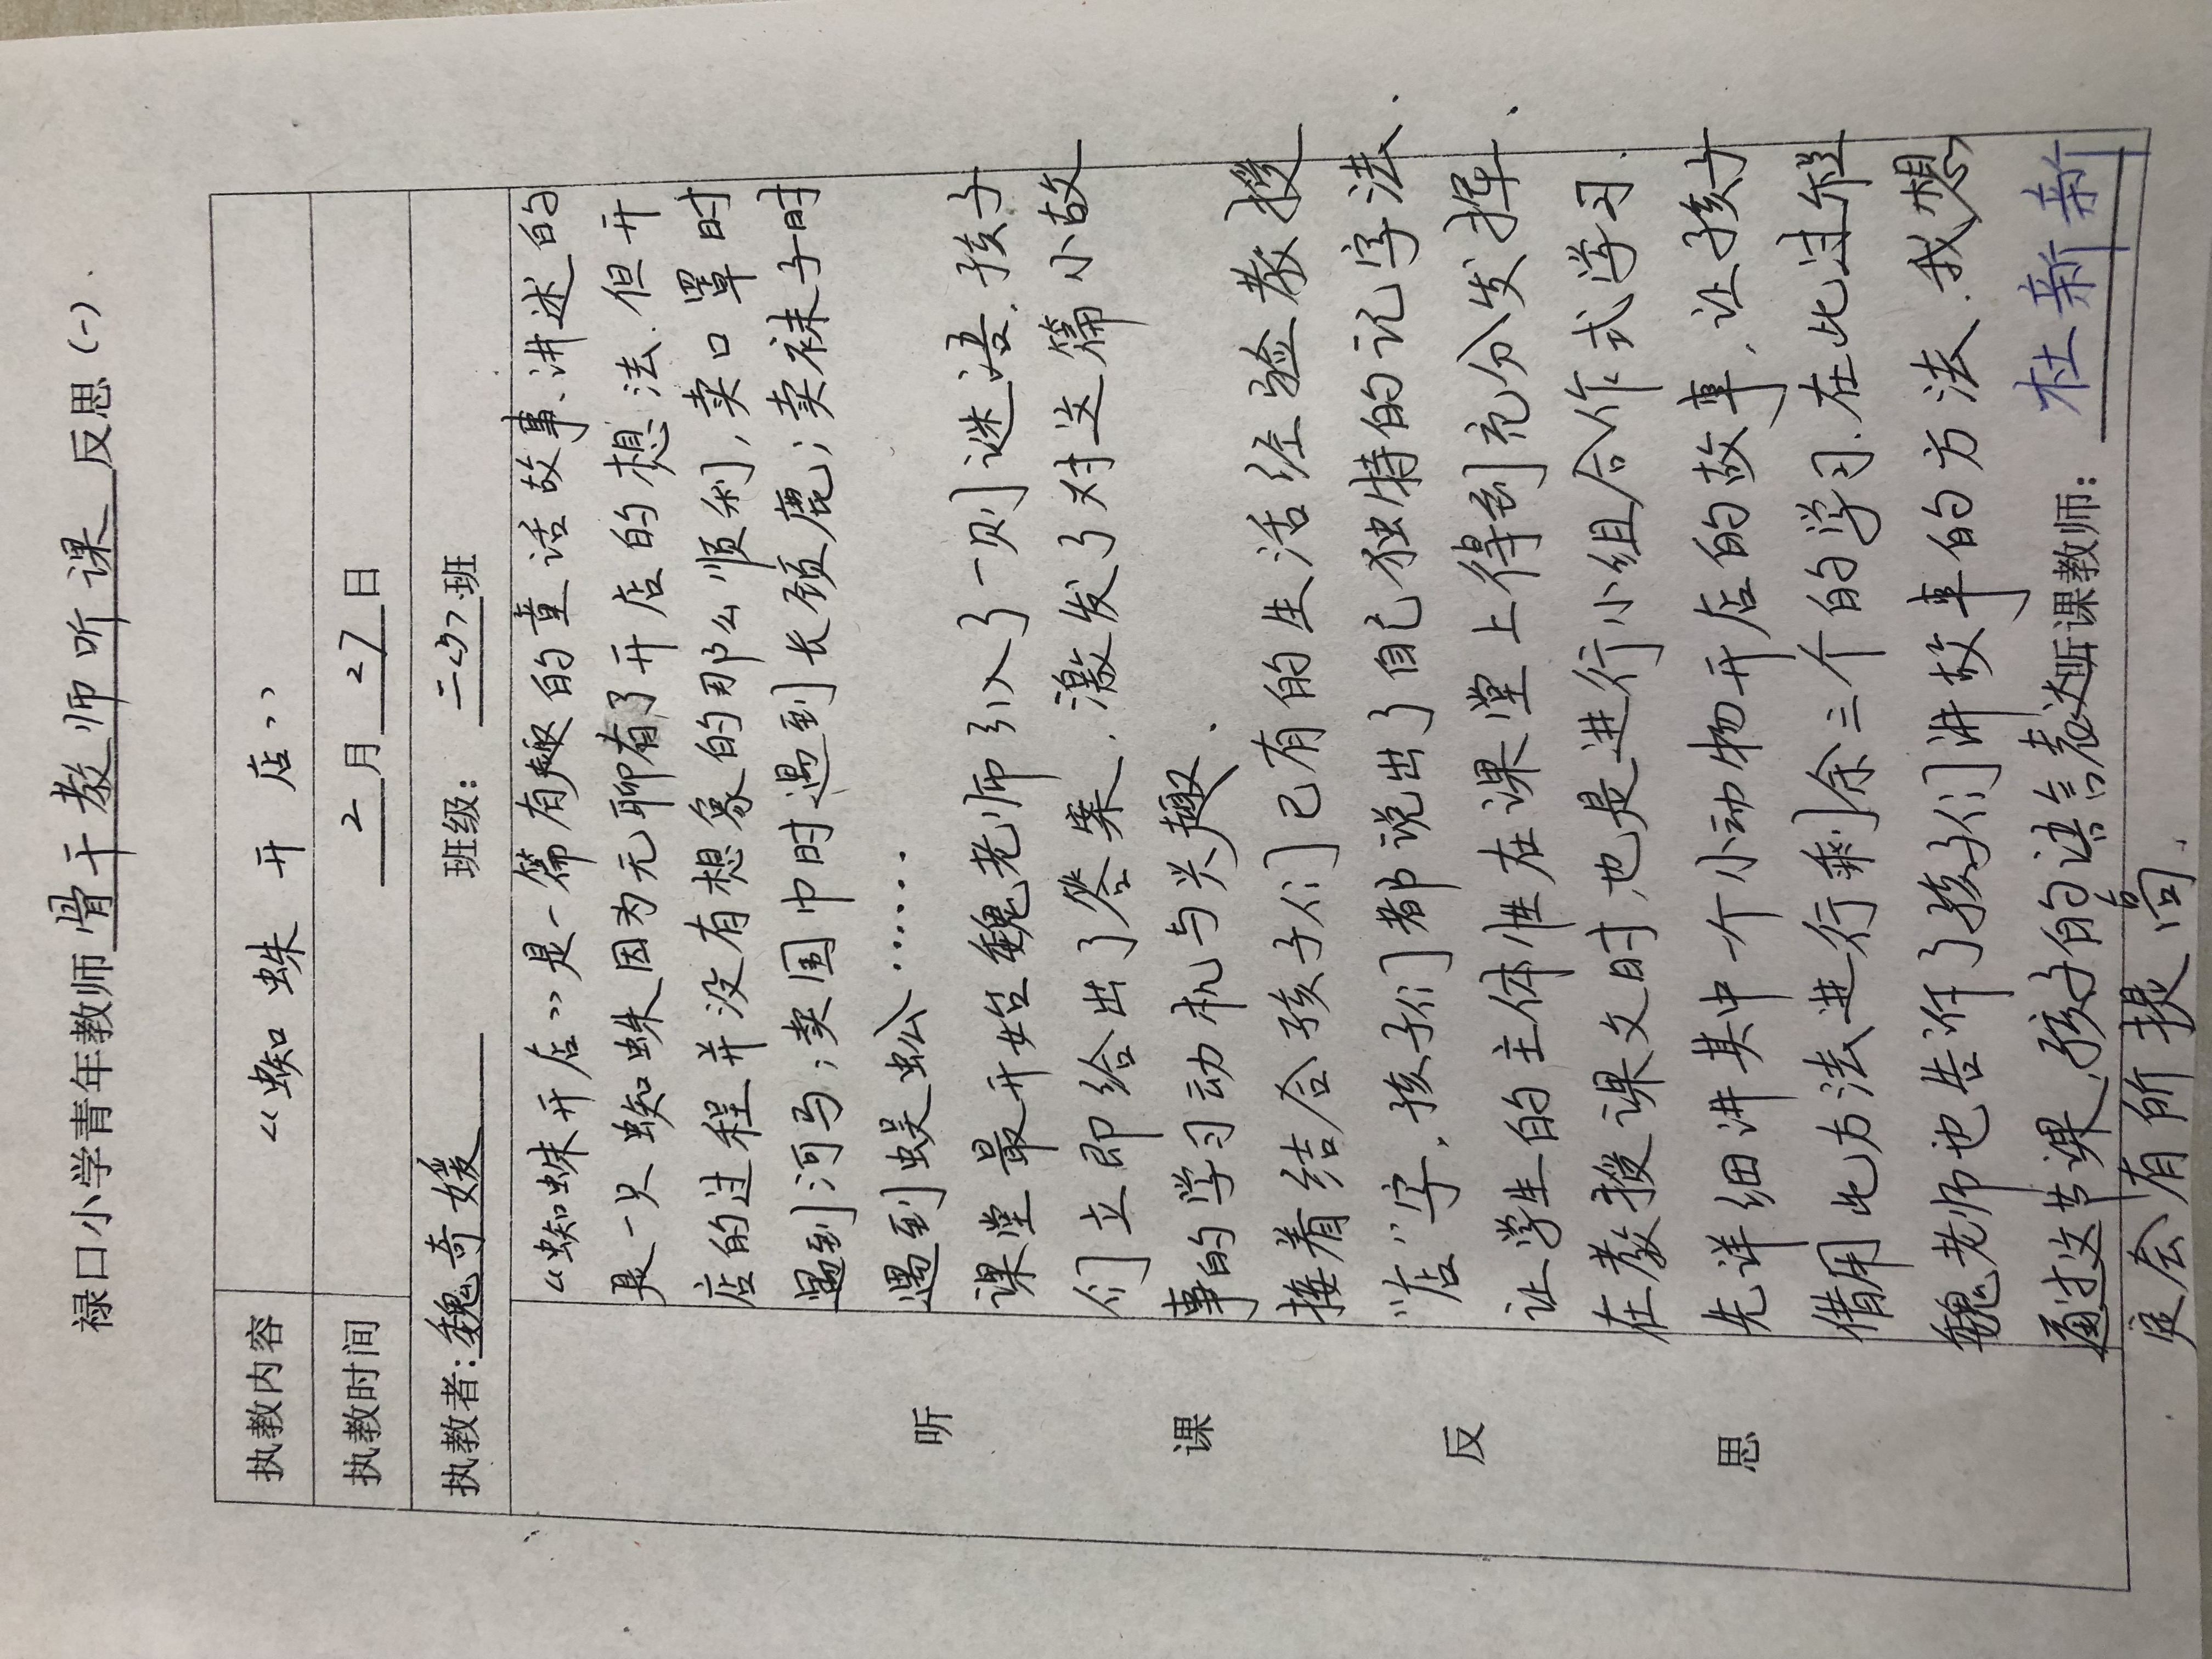 禄口小学青年教师骨干教师听课反思(一)
执教内容 《蜘蛛开店》
执教时间 2月27日
执教者:魏奇媛 班级: 二 班
《蜘蛛开店》是一篇有趣的童话故事.讲述的
是一只蜘蛛因为无聊有了开店的想法.但开
店的过程并没有想象的那么顺利,卖口罩时
遇到河马;卖围巾时遇到长颈鹿;卖袜子时
遇到蜈蚣……
课堂最开始魏老师引入了一则谜语.孩子
们立即给出了答案.激发了对这篇小故
事的学习动机与兴趣.
接着结合孩子们已有的生活经验教授
“店”字.孩子们都说出了自己独特的记字法.
让学生的主体性在课堂上得到充分发挥.
在教授课文时,也是进行小组合作式学习.
先详细讲其中一个小动物开店的故事,让孩子
借用此方法进行剩余三个的学习.在此过程
魏老师也告诉了孩子们讲故事的方法.我想
通过这节课,孩子的语言表达
定会有所提高.
听课反思
听课教师: 杜新新